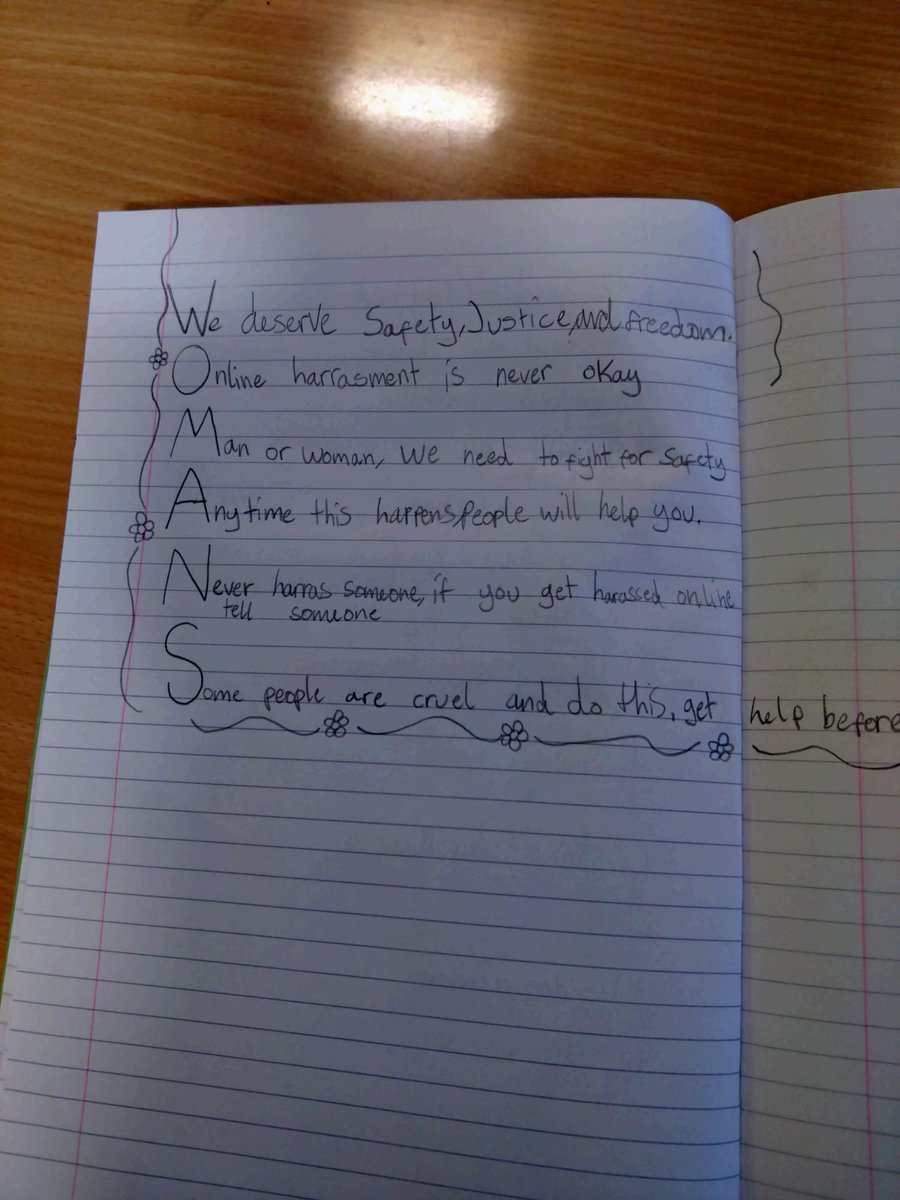 We deserve Safety, Justice, and freedom.
Online harrasment is never okay
Man or woman, we need to fight for safety
Anytime this happens, people will help you.
Never harras someone, if you get harassed online
tell someone
Some people are cruel and do this, get help before